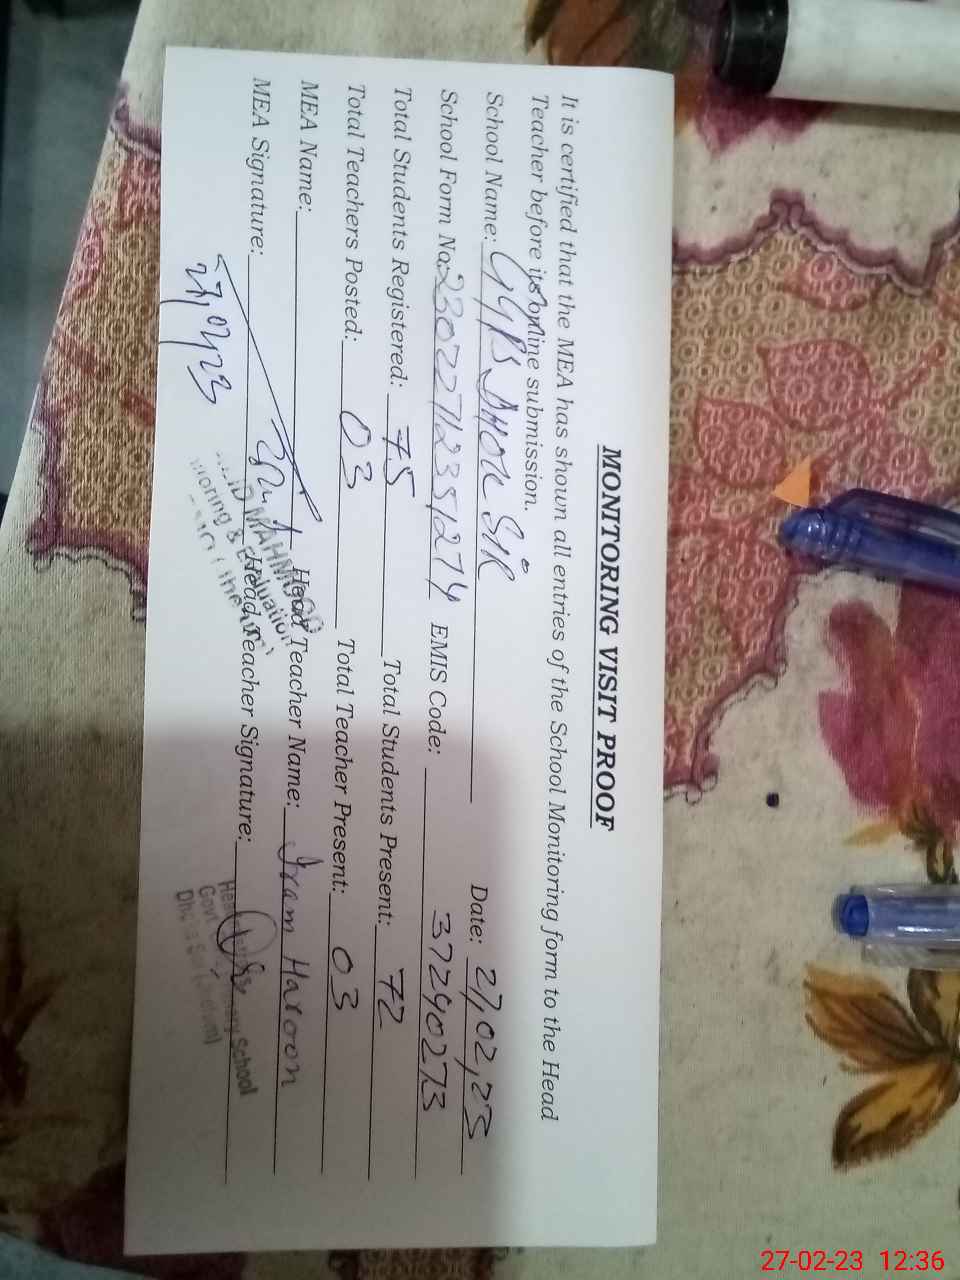 MONITORING VISIT PROOF
It is certified that the MEA has shown all entries of the School Monitoring form to the Head
Teacher before its online submission.
School Name: GGPS DHOK SIR Date: 27,02,23
School Form No: 23022712351274 EMIS Code: 37240273
Total Students Registered: 75 Total Students Present: 72
Total Teachers Posted: 03 Total Teacher Present: 03
MEA Name: Head Teacher Name: Iram Haroon
MEA Signature: Head Teacher Signature:
27,02,23
MAHMOOD
Evaluation
School
Govt
27-02-23 12:36